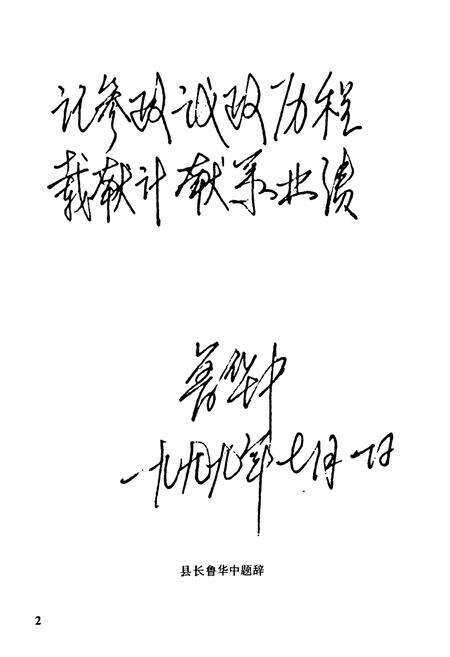 记参政议政历程
载献计献策业绩
鲁华中
一九九九年七月一日
县长鲁华中题辞
2